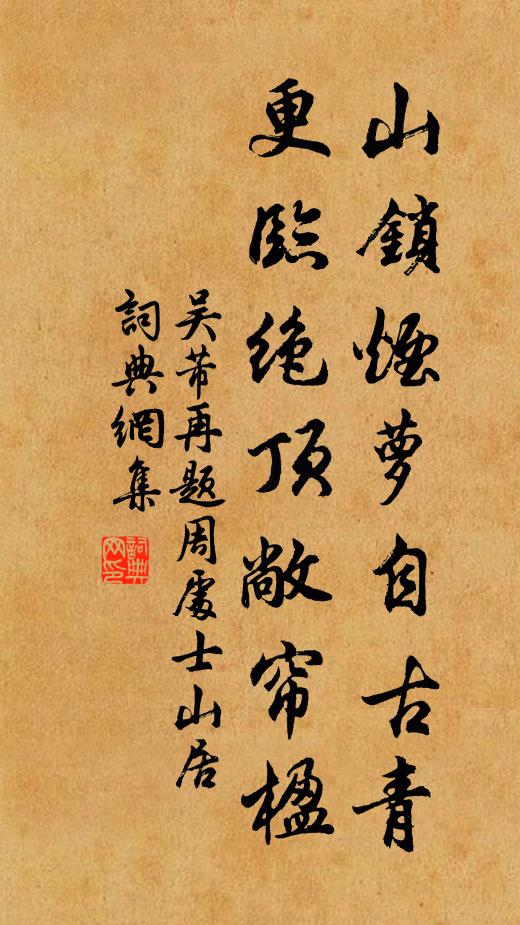 山鎖煙蘿自古青
更臨絶頂敞帘楹
吴芾再题周處士山居
詞典網集
詞典网印